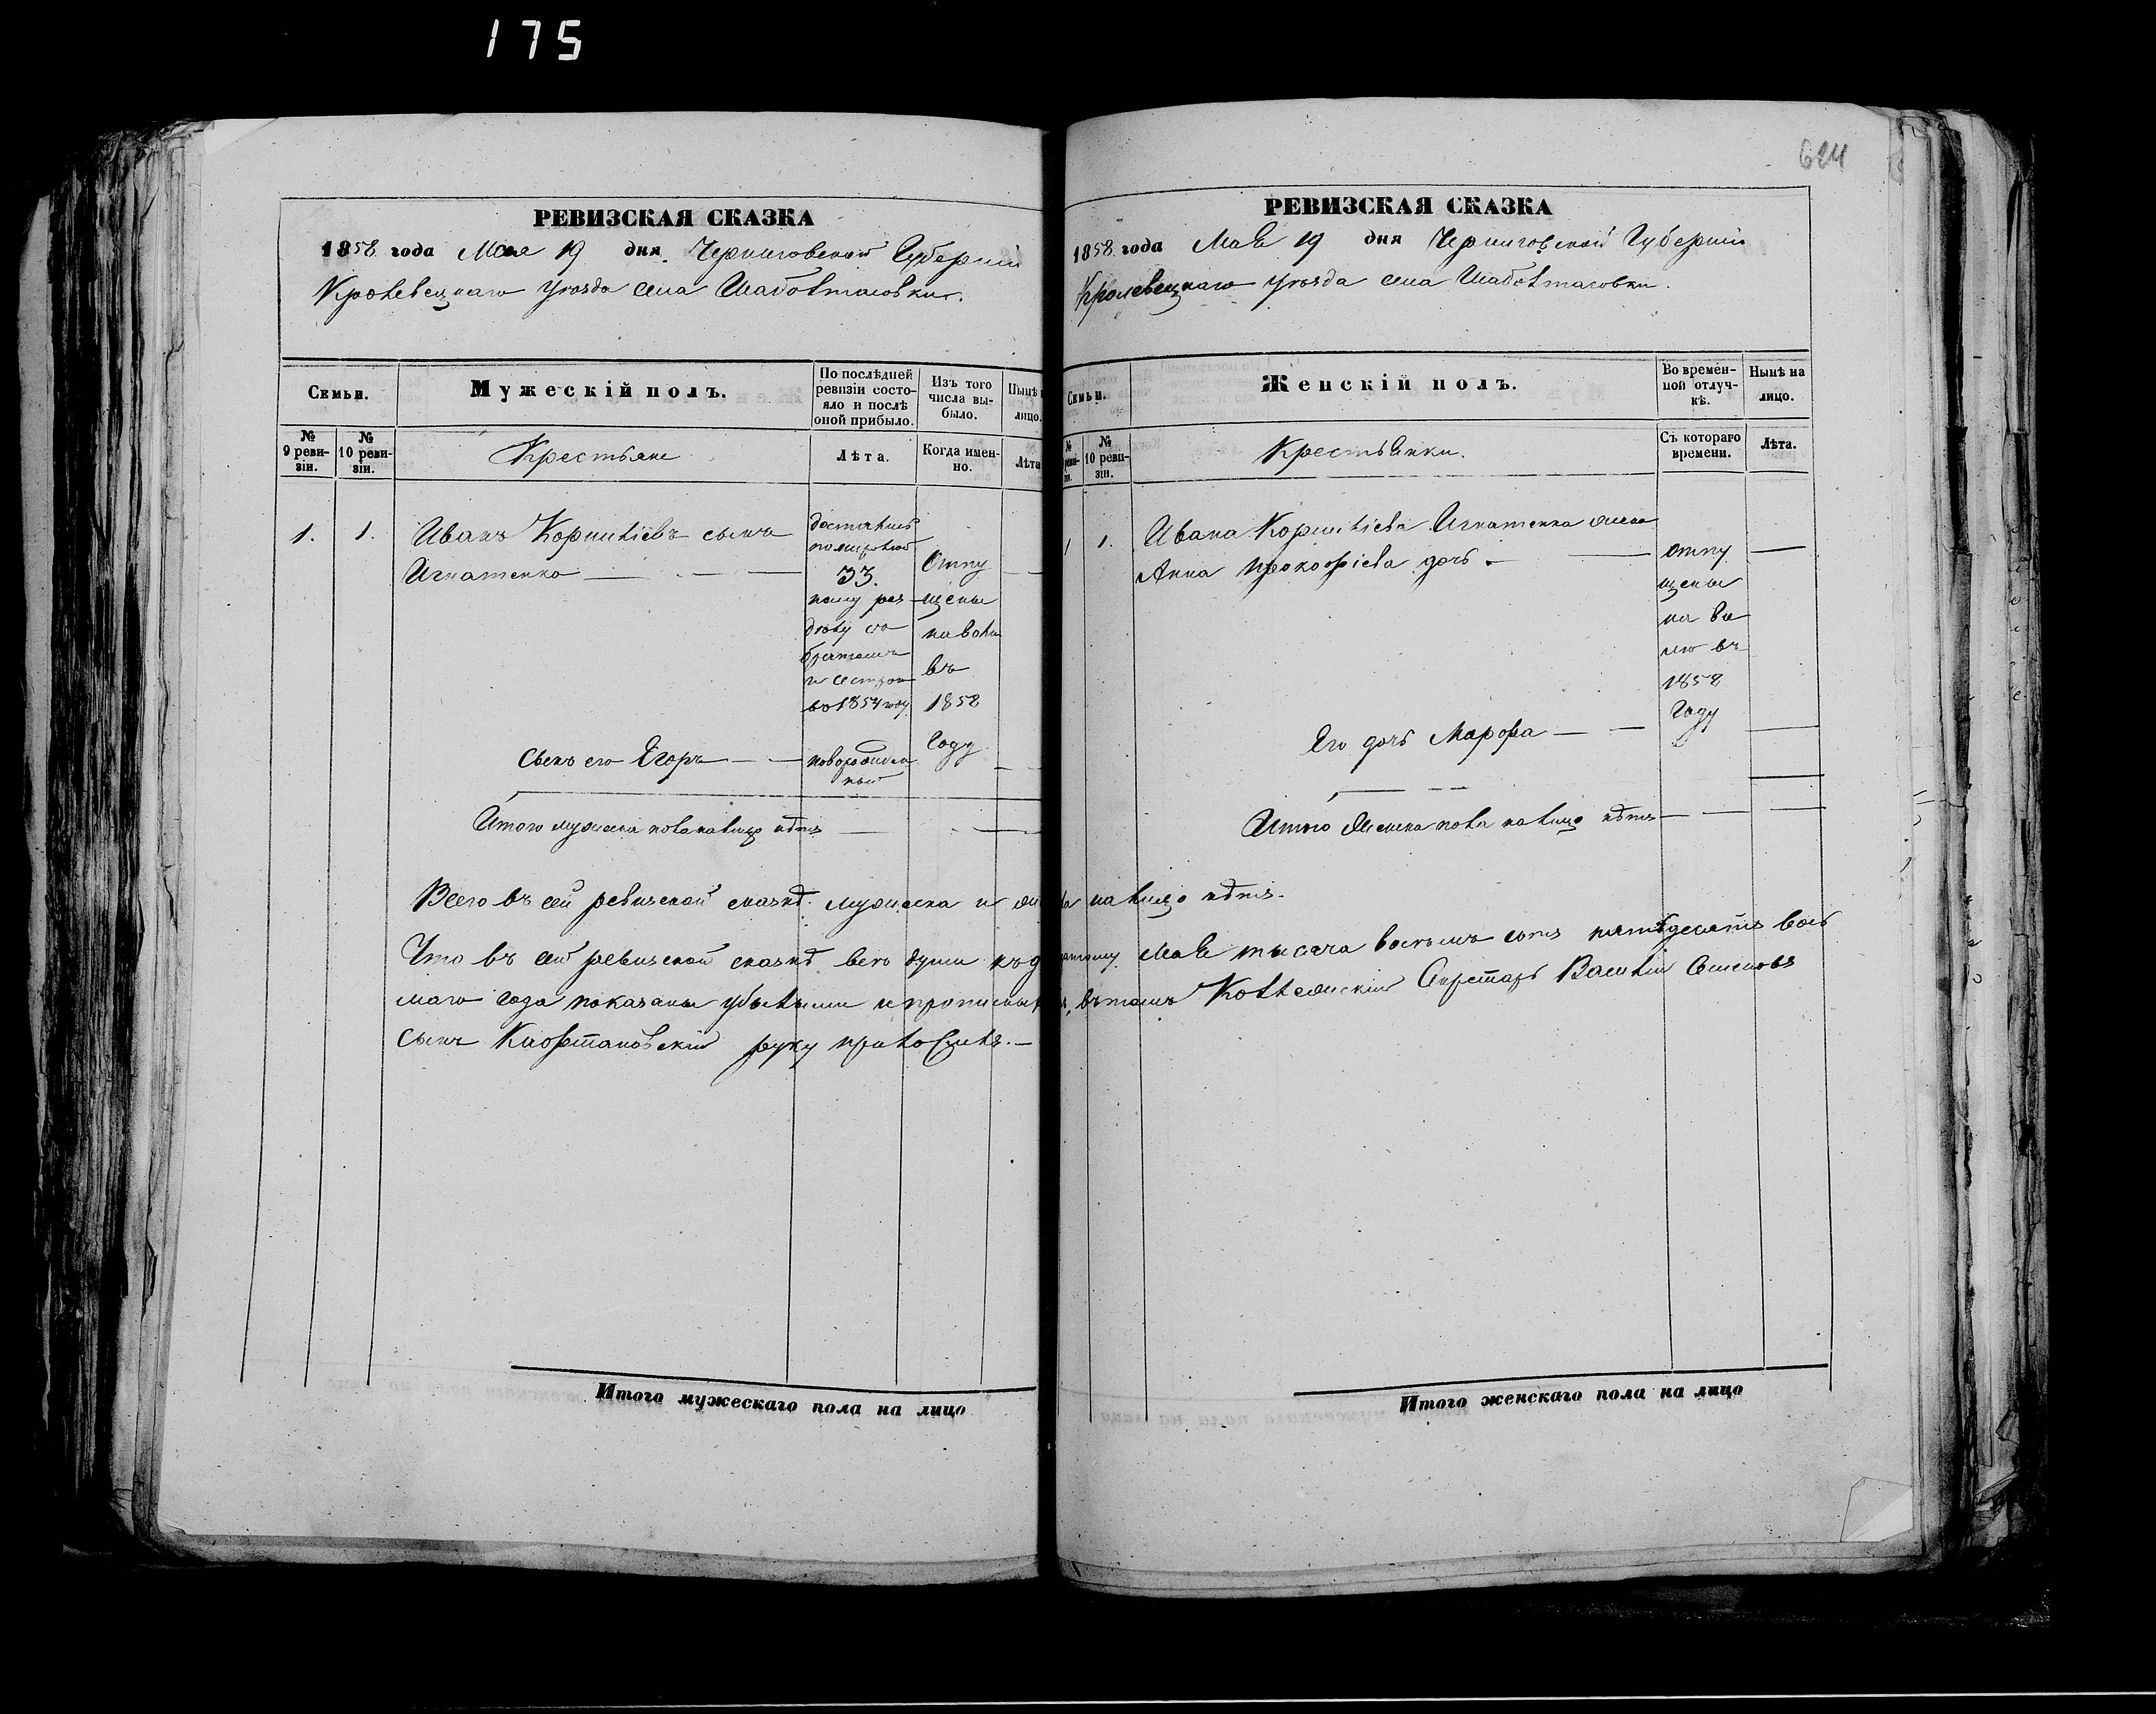 175
624
РЕВИЗСКАЯ СКАЗКА
1858 года Мая 19 дня Черниговской Губерніи
Кролевецкаго уезда села Шабалтасовки.
Семьи.
Мужескій полъ.
По послѣдней ревизіи состояло и послѣ оной прибыло.
Изъ того числа выбыло.
Нынѣ
лицо.
№ 9 ревизіи.
№ 10 ревизіи.
Крестьяне
Лѣта.
Когда именно.
Лѣта
1.
1.
Иванъ Корнилієвъ сынъ
Игнатенко
33.
по раз
делу со
братомъ
и сестрою
въ 1854 году
Отпу
щены
на волю
въ
1858
Году
Сынъ его Егоръ
новорожден
ный
Итого мужеска пола налицо нѣтъ
РЕВИЗСКАЯ СКАЗКА
1858 года Мая 19 дня Черниговской Губерніи
Кролевецкаго уезда села Шабалтасовки.
Семьи.
Женскій полъ.
Во временной отлучкѣ.
Нынѣ на лицо.
№
№ 10 ревизіи.
Крестьянки.
Съ котораго времени.
Лѣта.
1
1.
Ивана Корнилієва Игнатенка жена
Анна Прокофієва дочь
отпу
щены
на во
лю въ
1858
Году
Его дочь Марфа
Итого женска пола налицо нѣтъ
Всего въ сей ревизской сказкѣ мужеска и женска налицо нѣтъ.
Что въ сей ревизской сказкѣ всѣ души къ Мая тысяча восемь сотъ пятьдесятъ вось
маго года показаны убылыми и въ томъ Коллежскій Секретарь Василій Семеновъ
сынъ руку приложилъ.
Итого мужескаго пола на лицо
Итого женскаго пола на лицо